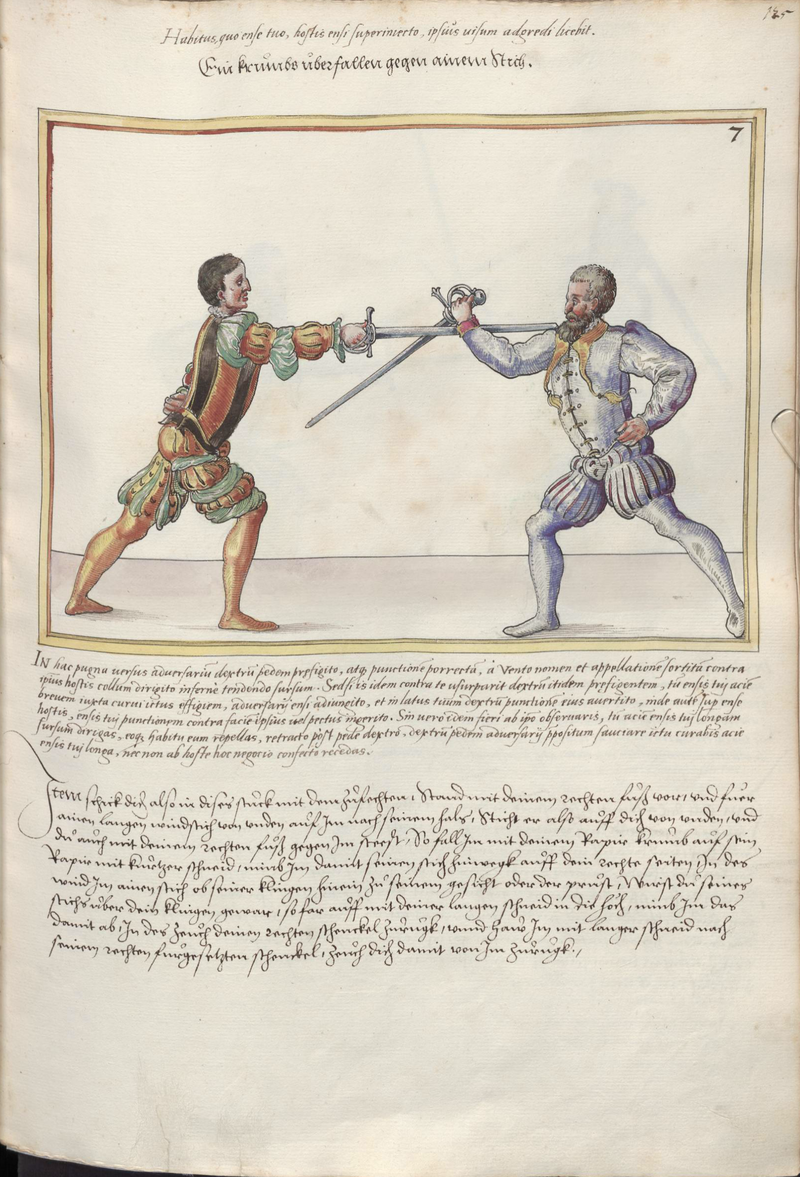 185
Habitus, quo ense tuo, hostis ensi superiniecto, ipsius uisum adgredi licebit.
Ein krumbs uberfallen gegen ainem Stich.
7
IN hac pugna versus adversariũ dextrũ pedem prefigito, atq; punctione porrecta, à Vento nomen et appellationẽ sortita contra
ipsius hostis collum dirigito infernè tendendo sursum. Sed si is idem contra te usurparit dextrũ itidem prefigentem, tu ensis tuj acie
brevem iuxta curui ictus effigiem, adversarij ensi adiungito, et in latus tuum dextrũ punctione eius avertito, inde aute sup ense
hostis, ensis tuj punctionem contra faciẽ ipsius uel pectus ingerito. Sin uero idem fieri ab ipo observaris, tu acie ensis tuj longam
sursum dirigas, eoq; habitu eum repellas, retracto post pede dextro, dextrũ pedem adversarij ppositum sauciare ictu curabis acie
ensis tuj longa, nec non ab hoste hoc negocio confecto recedas.
Item schick dich also in dises stuck mit dem zufechten, Stand mit deinem rechten fuß vor, und fuer
ainen langen windstich von unden auf Im nach seinem hals, Sticht er als auff dich von unden, und
du auch mit deinem rechten fuß gegen Im steest, So fall Im mit deinem Rapier krumb auf sein
Rapier mit kurtzer schneid, nimb Im damit seinen stich hinwegk auff dein rechte seiten, In des
wind Im ainen stich ob seiner klingen hinein zu seinem gesicht oder der prust, Wirst du seines
stichs uber dein klingen gewar, so far auff mit deiner langen schneid in die hoch, nimb Im das
damit ab, In des zeuch deinen rechten schenckel zurugk, unnd haw Im mit langer schneid nach
seinem rechten furgesetzten schenckel, zeuch dich damit von Im zurugk.